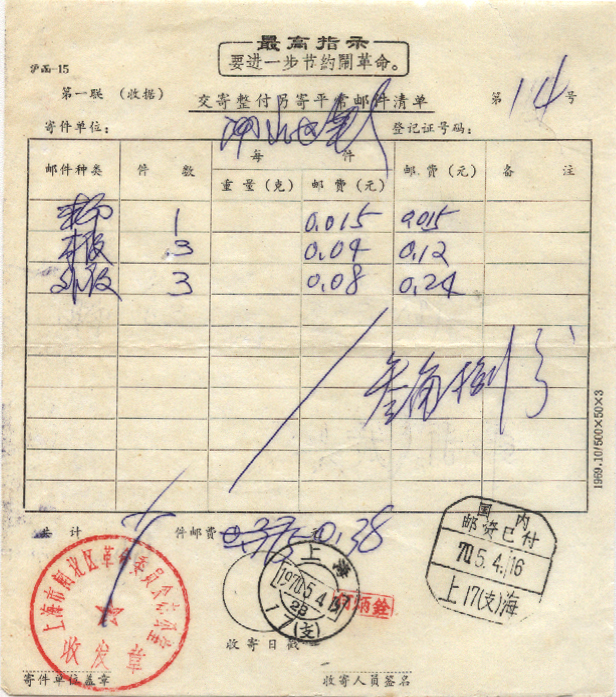 最高指示
要进一步节约闹革命。
沪函-15
第一联 (收据) 交寄整付另寄平常邮件清单 第 14 号
寄件单位： 登记证号码：
邮件种类 件数 每件 邮费(元) 备注
重量(克) 邮费(元)
1 0.015 0.015
本段 3 0.04 0.12
外段 3 0.08 0.24
1969.10/500×50×3
共计 件邮费 0.375 0.38
国内
邮资已付
70.5.4.16
上17(支)海
上海
1970.5.4
17(支)
上海市闸北区革命委员会
收发章
收寄日戳
寄件单位盖章 收寄人员签名